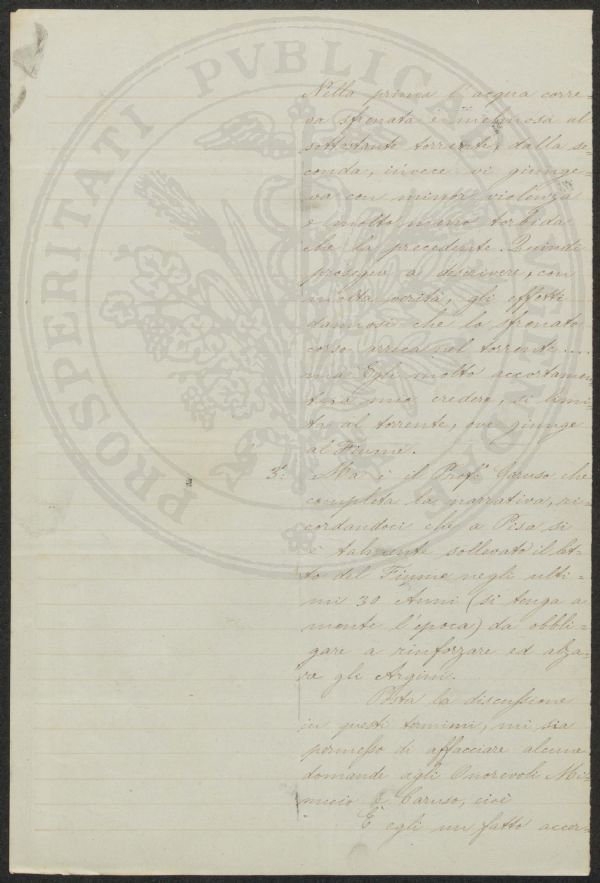 PROSPERITATI PVBLICAE AVGENDAE
Nella prima l'acqua corre-
va sfrenata e melmosa al
sottostante torrente, dalla se-
conda, invece vi giunge-
va con minor violenza
e molto meno torbida
che la precedente. Quindi
prosegue a descrivere, con
molta verità, gli effetti
dannosi che lo sfrenato
corso arreca al torrente....
ma Egli molto accortamen-
te a mio credere, si limi-
ta al torrente, ove giunge
al Fiume.
3.° Ma è il Prof.e Caruso che
completa la narrativa, ri-
cordandoci che a Pisa si
è talmente sollevato il let-
to del Fiume negli ulti-
mi 30 Anni (si tenga a
mente l'epoca) da obbli-
gare a rinforzare ed alza-
re gli Argini.
Posta la discussione
in questi termini, mi sia
permesso di affacciare alcune
domande agli Onorevoli Mi-
nucci e Caruso, cioè
È egli un fatto accer-